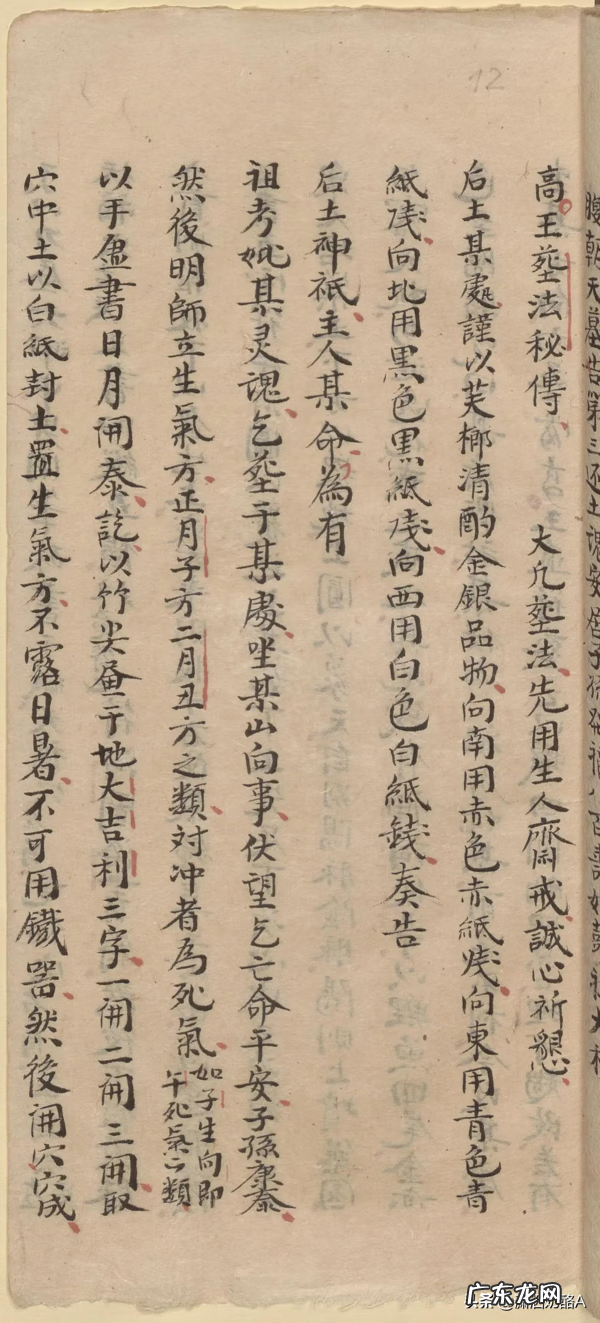 12
高王塟法秘傳 大凡塟法先用生人齋戒誠心祈懇
后土某處謹以芙榔清酌金銀品物向南用赤色赤紙㦮向東用青色青
紙㦮向北用黑色黑紙㦮向西用白色白紙錢奏告
后土神祇主人某命為有
祖考妣某灵魂乞塟于某處坐某山向事伏望乞亡命平安子孫康泰
然後明師立生氣方正月子方二月丑方之類対冲者為死氣
如子生向即
午死氣之類
以手虛書日月開泰訖以竹尖畫于地大吉利三字一開二開三開取
穴中土以白紙封土置生氣方不露日暑不可用鐵器然後開穴穴成
广东龙网